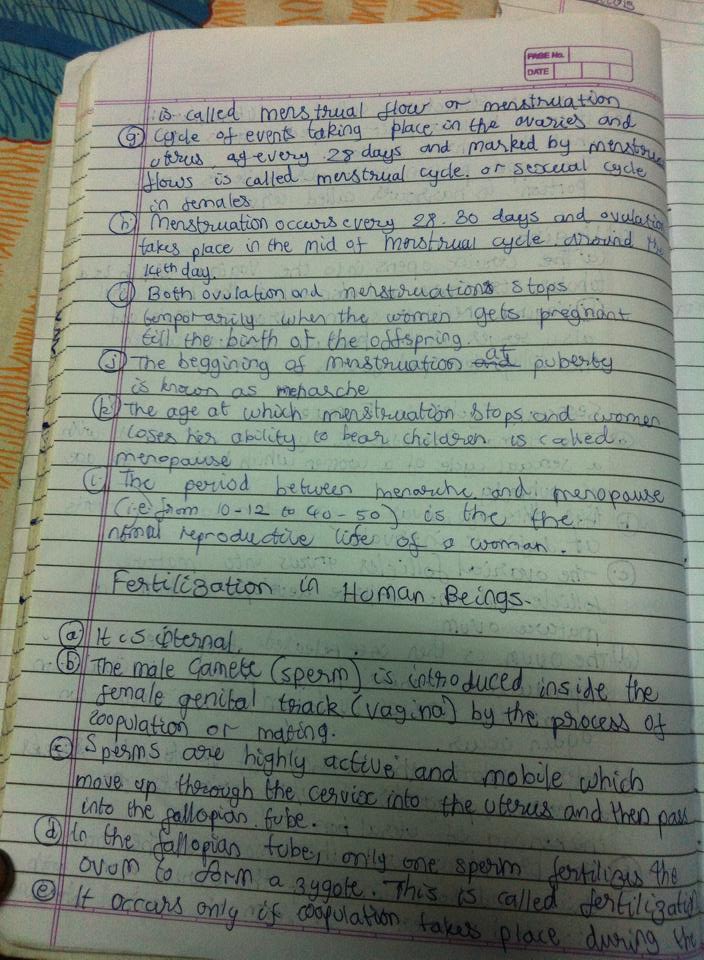 PAGE No.
DATE
is called menstrual flow or menstruation
(g) Cycle of events taking place in the ovaries and
uterus af every 28 days and marked by menstrual
flows is called menstrual cycle. or sexual cycle
in females
(h) Menstruation occurs every 28-30 days and ovulation
takes place in the mid of menstrual cycle around the
14th day.
(i) Both ovulation and menstruations stops
temporarily when the women gets pregnant
till the birth of the offspring.
(j) The beggining of menstruation and at puberty
is known as menarche
(k) The age at which menstruation stops and women
loses her ability to bear children is called.
menopause
(l) The period between menarche and menopause
(i.e. from 10-12 to 40-50) is the the
normal reproductive life of a woman.
Fertilization in Human Beings.
(a) It is internal.
(b) The male Gamete (sperm) is introduced inside the
female genital track (vagina) by the process of
coopulation or mating.
(c) Sperms are highly active and mobile which
move up through the cervix into the uterus and then pass
into the fallopian tube.
(d) In the fallopian tube, only one sperm fertilizes the
ovum to form a zygote. This is called fertilization
(e) It occurs only if coopulation takes place during the